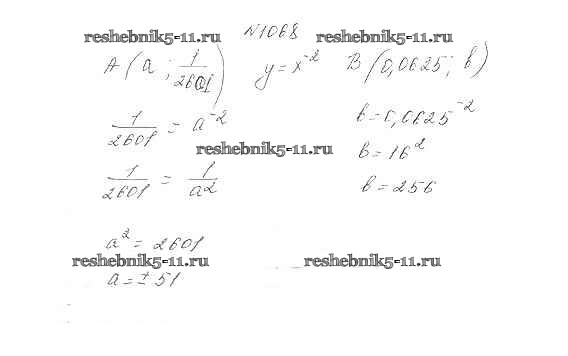 N1068
reshebnik5-11.ru reshebnik5-11.ru
A (a ; 1/2601) y = x^-2 B (0,0625 ; b)
1/2601 = a^-2
b = 0,0625^-2
reshebnik5-11.ru
b = 16^2
1/2601 = 1/a^2
b = 256
a^2 = 2601
reshebnik5-11.ru reshebnik5-11.ru
a = ± 51